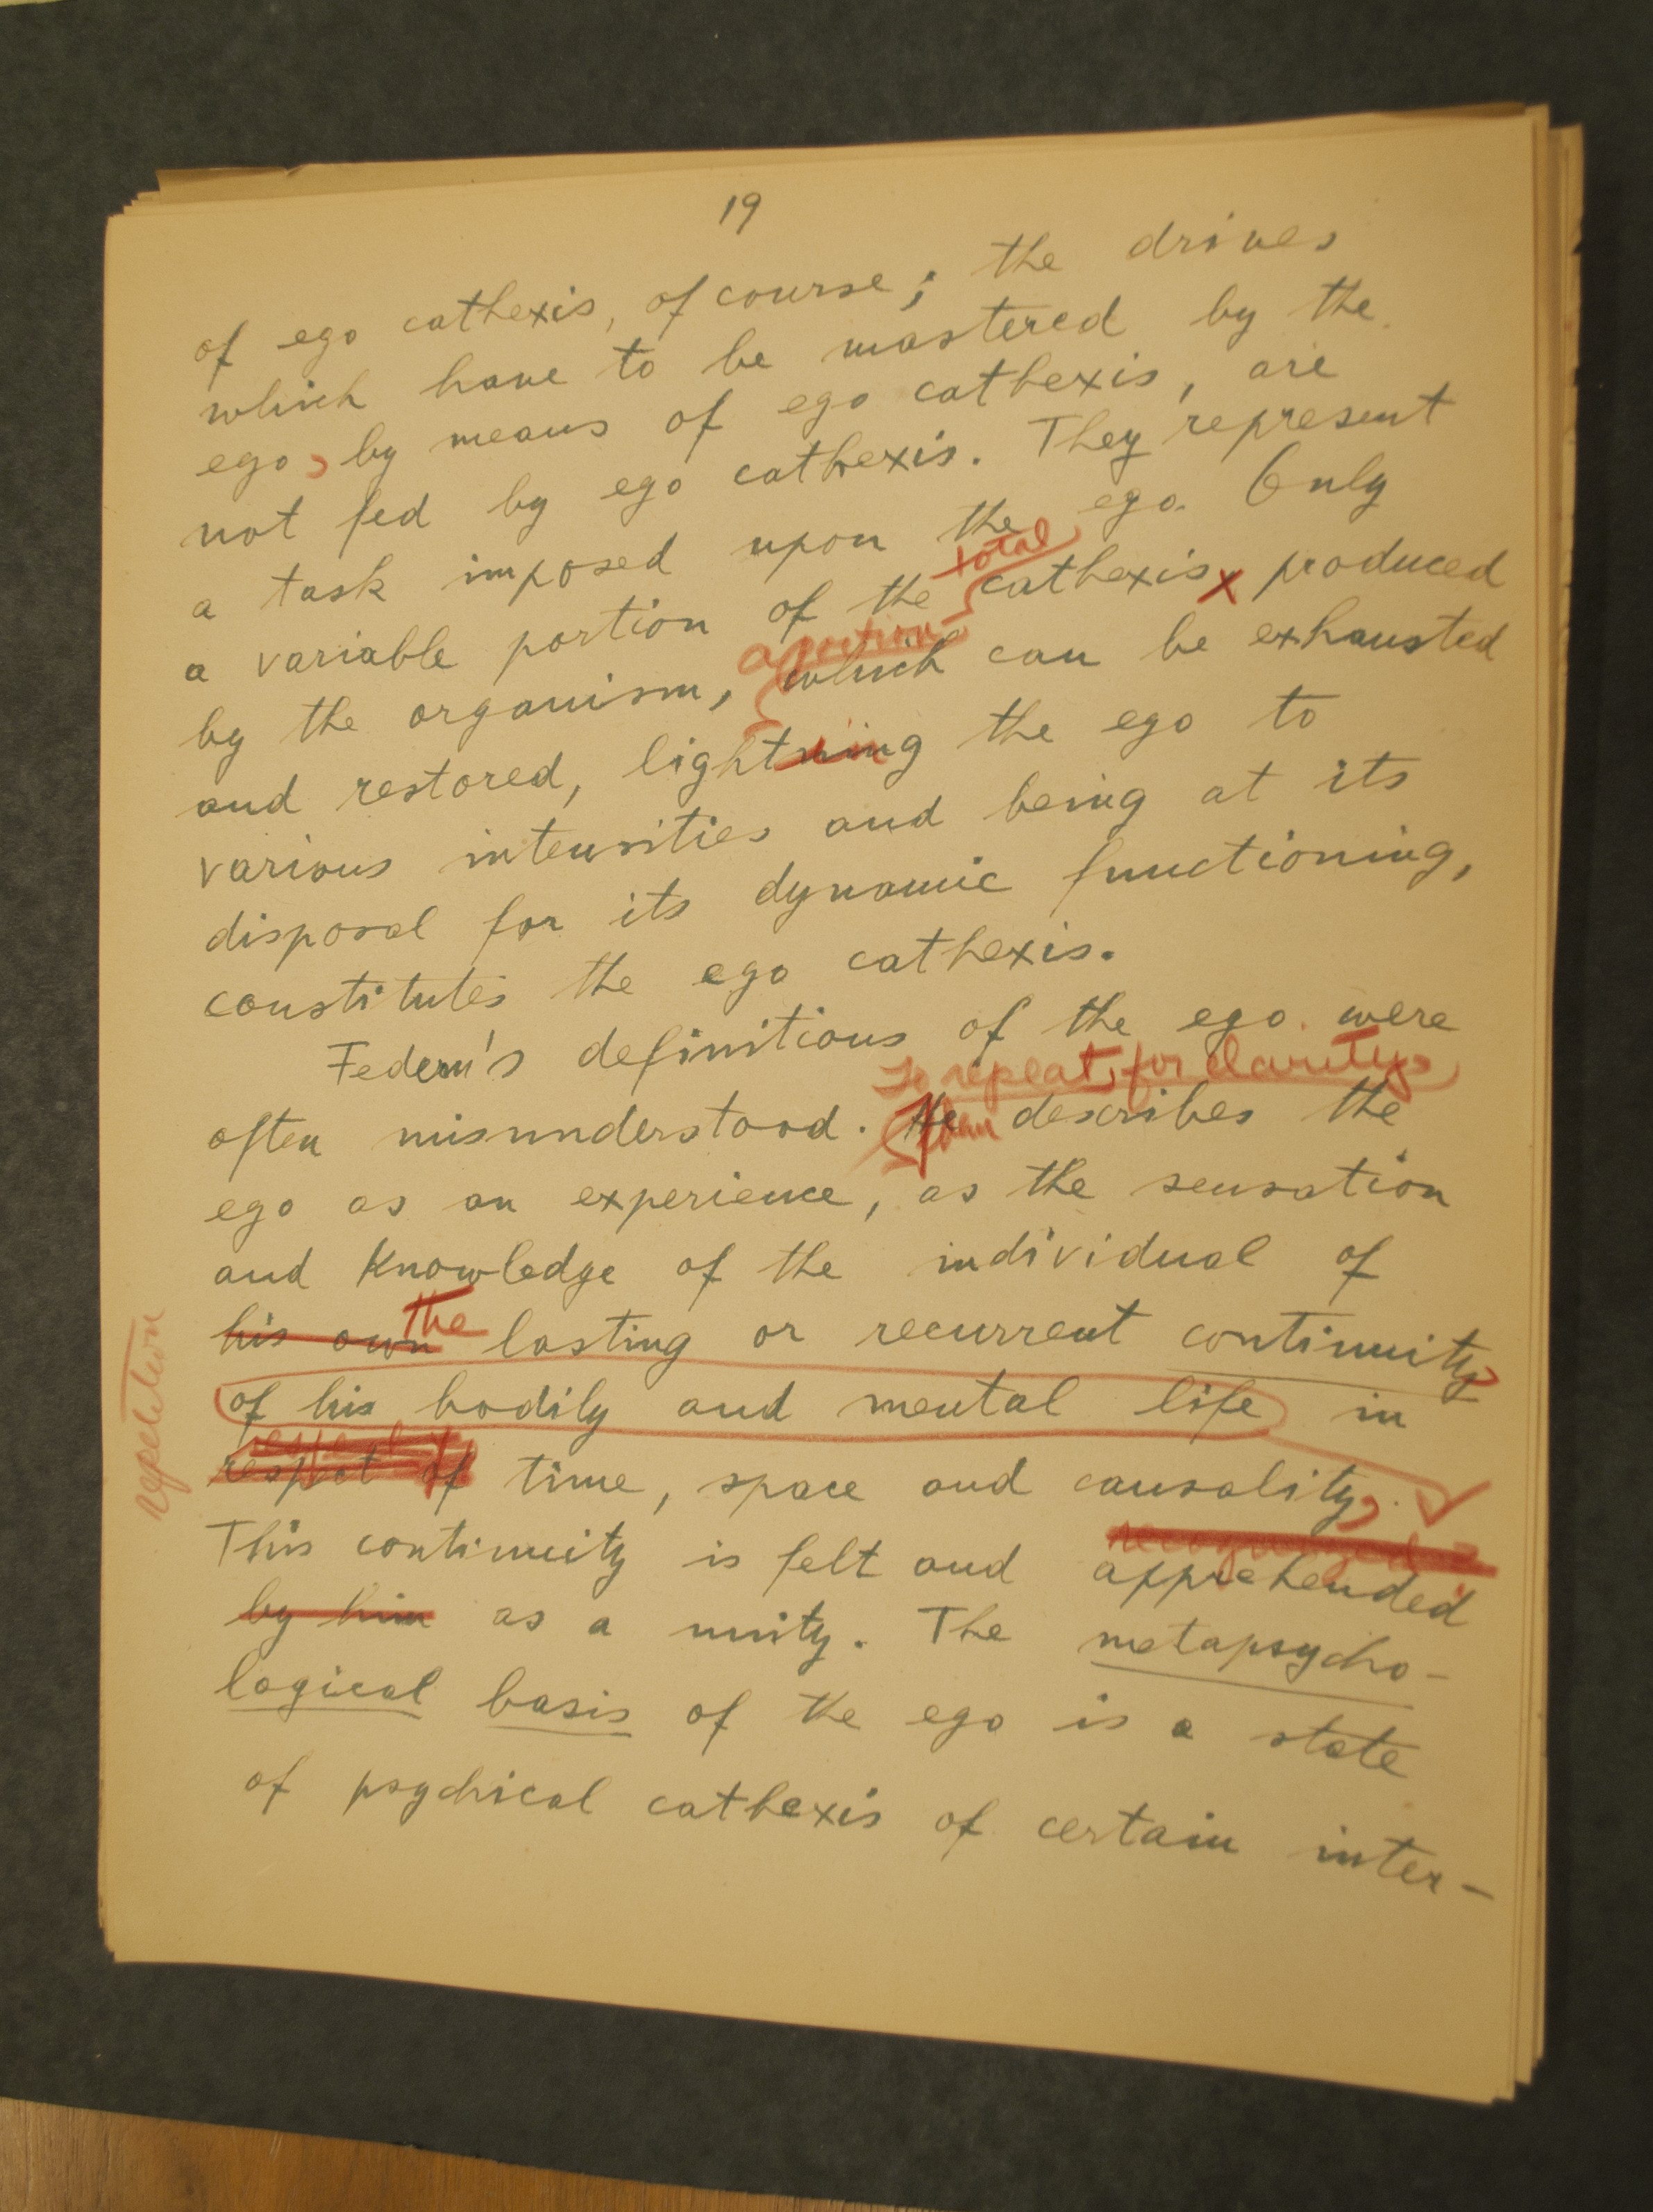 19
of ego cathexis, of course; the drives
which have to be mastered by the
ego, by means of ego cathexis, are
not fed by ego cathexis. They represent
a task imposed upon the ego. Only
total
a variable portion of the cathexis x produced
a portion
by the organism, which can be exhausted
and restored, lightning the ego to
various intensities and being at its
disposal for its dynamic functioning,
constitutes the ego cathexis.
Federn's definitions of the ego were
To repeat, for clarity,
often misunderstood. He describes the
ego as an experience, as the sensation
and knowledge of the individual of
the
his own lasting or recurrent continuity
of his bodily and mental life in
respect of time, space and causality,.
recognized
This continuity is felt and apprehended
by him as a unity. The metapsycho-
logical basis of the ego is a state
of psychical cathexis of certain inter-
repetition